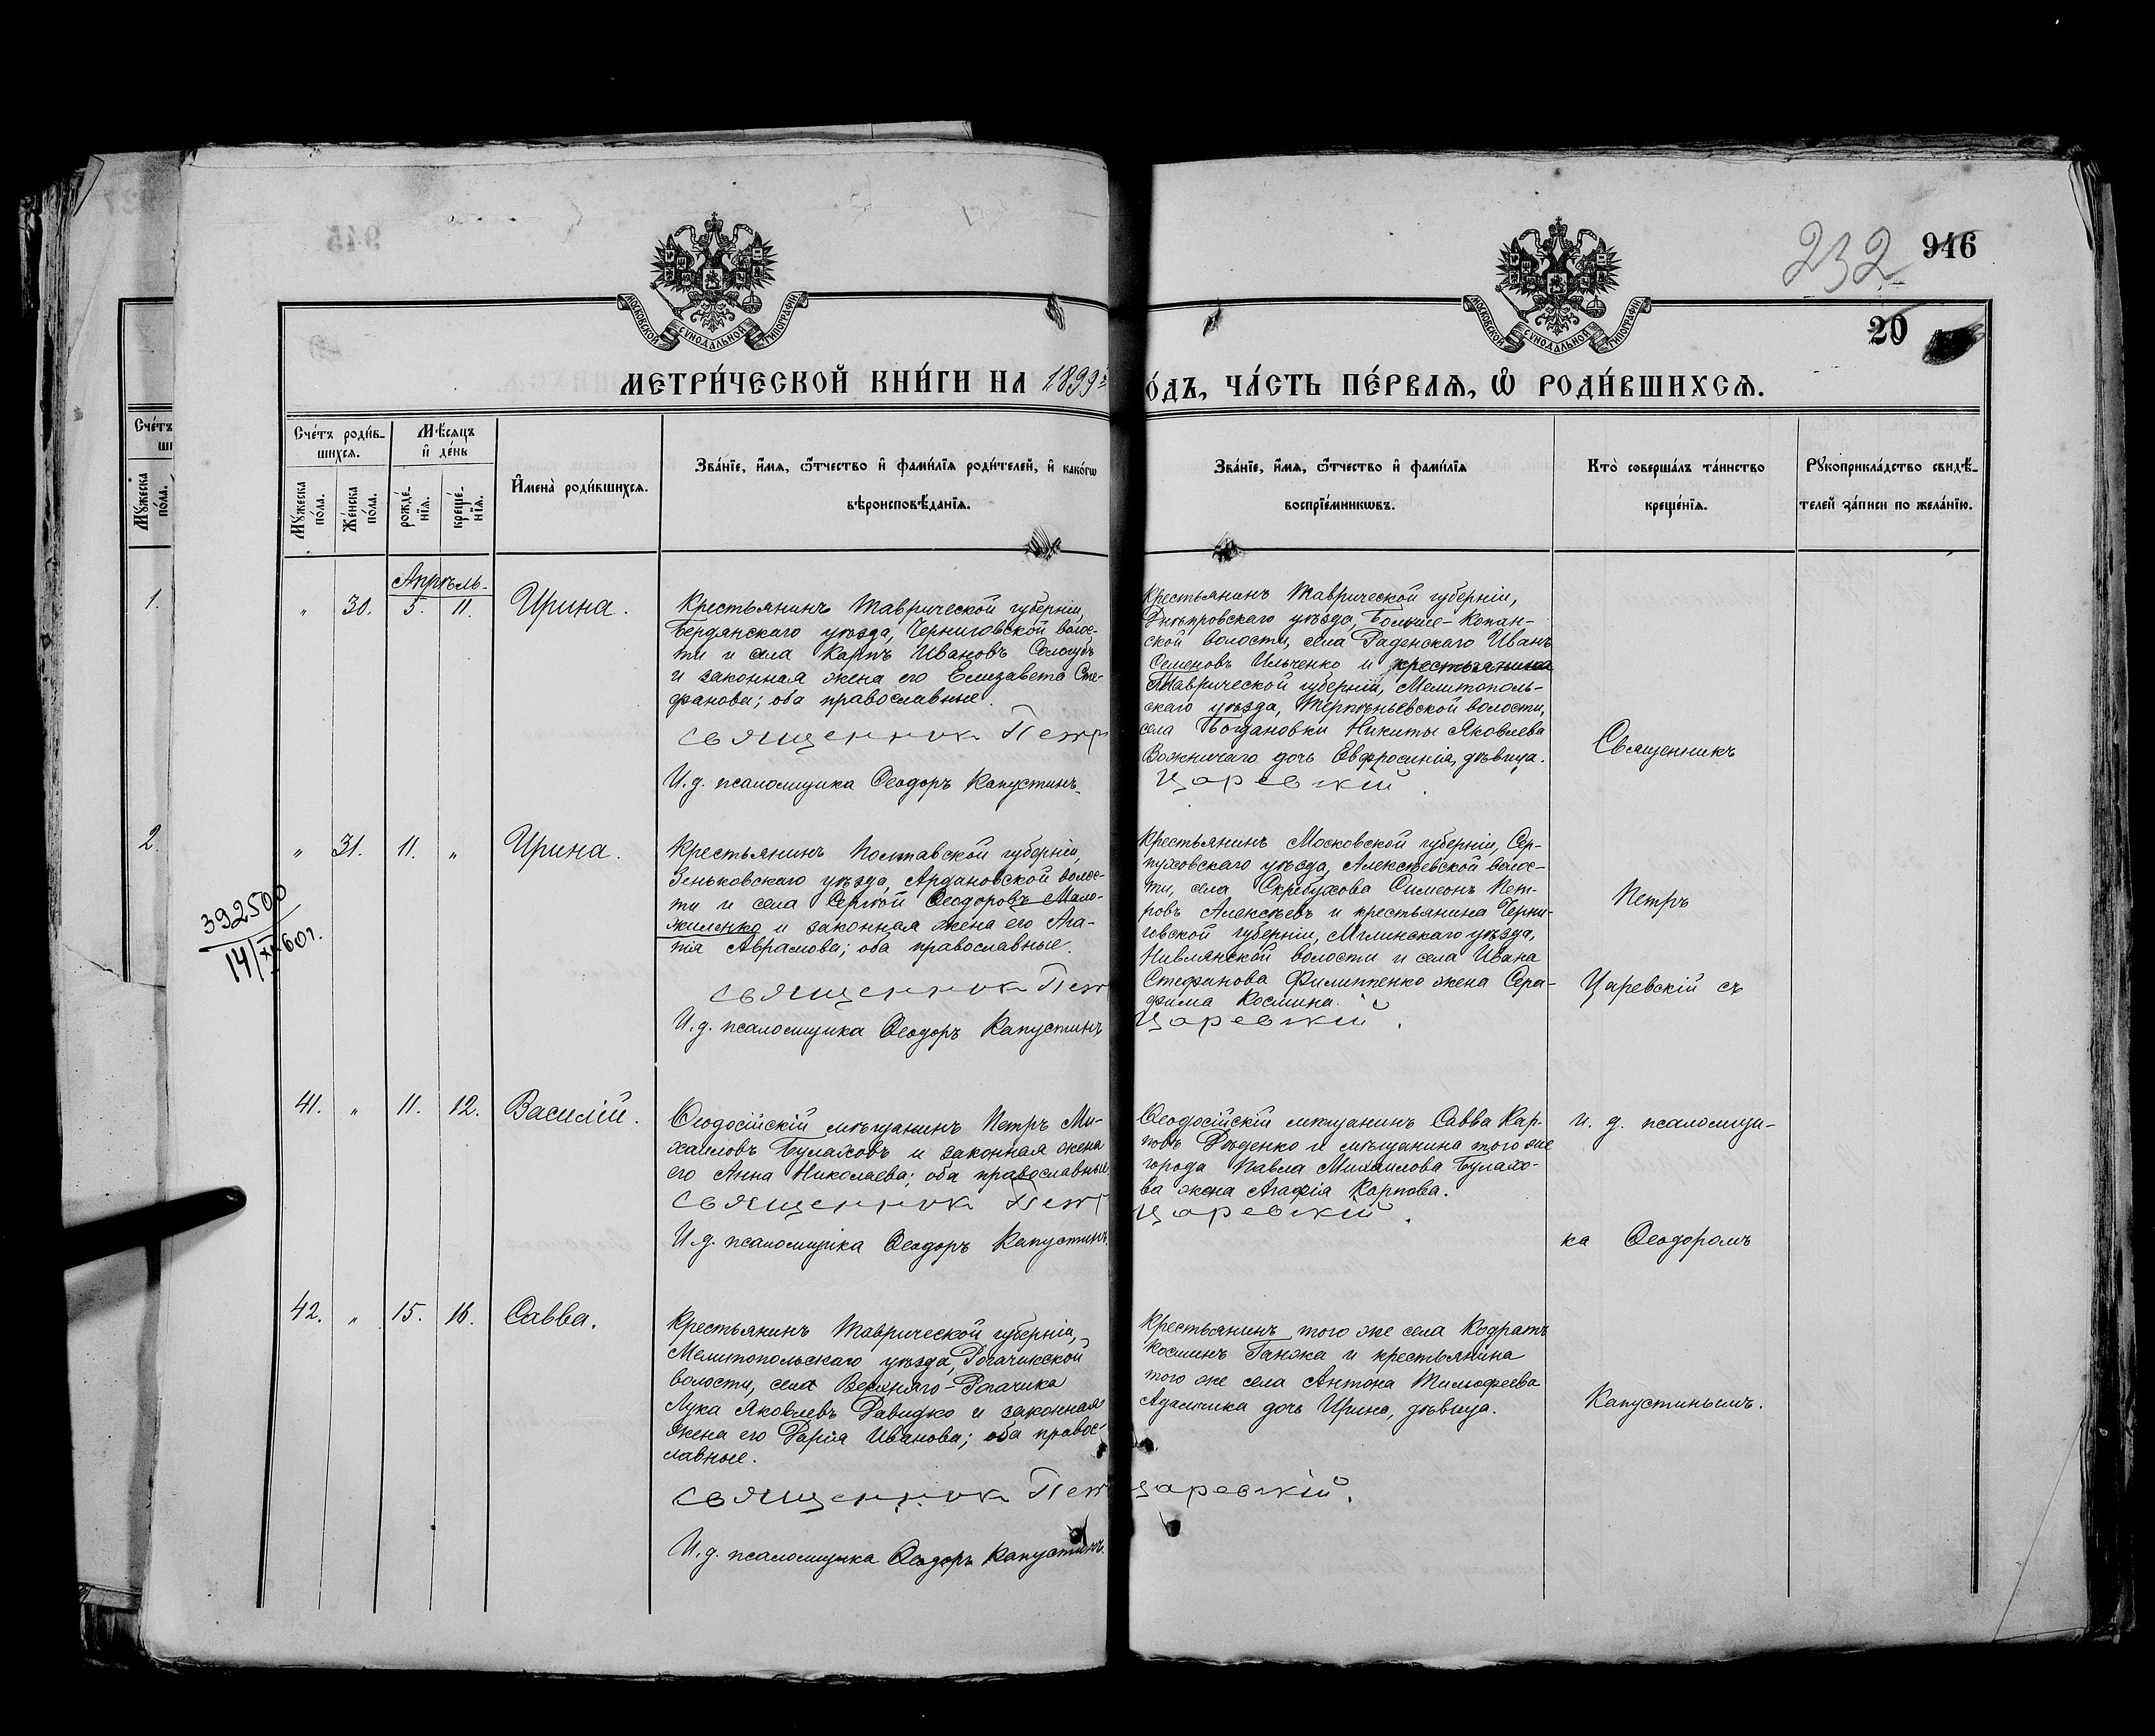 232 946
20
МОСКОВСКОЙ СѴНОДАЛЬНОЙ ТИПОГРАФІИ
МОСКОВСКОЙ СѴНОДАЛЬНОЙ ТИПОГРАФІИ
МЕТРИ́ЧЕСКОЙ КНИ́ГИ НА 1899
О́ДЪ, ЧА́СТЬ ПЕ́РВАѦ, Ѽ РОДИ́ВШИХСѦ.
Сче́тъ роди́в-
шихсѧ.
Мꙋ́жеска по́ла.
Же́нска по́ла.
Мѣ́сѧцъ
и҆ де́нь
рожде́-
нїѧ.
креще́-
нїѧ.
И҆мена̀ роди́вшихсѧ.
Зва́нїе, и҆́мѧ, ѻ҆́тчество и҆ фами́лїѧ роди́телей, и҆ како́гѡ
вѣроисповѣ́данїѧ.
Зва́нїе, и҆́мѧ, ѻ҆́тчество и҆ фами́лїѧ
воспрїе́мникѡвъ.
Кто̀ соверша́лъ та́инство
креще́нїѧ.
Рꙋкоприкла́дство свидѣ́-
телей за́писи по жела́нїю.
1.
2.
Апрѣль.
" 30. 5. 11. Ирина.
Крестьянинъ Таврической губерніи,
Бердянскаго уѣзда, Черниговской волос-
ти и села Карпъ Ивановъ Сологубъ
и законная жена его Елизавета Сте-
фанова; оба православные.
Священник Петр
И. д. псаломщика Ѳеодоръ Капустинъ.
Крестьянинъ Таврической губерніи,
Днѣпровскаго уѣзда, Больше-Копан-
ской волости, села Раденскаго Иванъ
Семеновъ Ильченко и крестьянина
Таврической губерніи, Мелитополь-
скаго уѣзда, Терпѣньевской волости,
села Богдановки Никиты Яковлева
Вожничаго дочь Евфросинія, дѣвица.
Царевскій.
Священникъ
392500
14/XII 60г.
" 31. 11. " Ирина.
Крестьянинъ Полтавской губерніи,
Зеньковскаго уѣзда, Ардановской волос-
ти и села Сергѣй Ѳеодоровъ Мало-
жиленко и законная жена его Ага-
пія Аврамова; оба православные.
Священник Пет
И. д. псаломщика Ѳеодоръ Капустинъ
Крестьянинъ Московской губерніи, Сер-
пуховскаго уѣзда, Алексѣевской волос-
ти, села Скребухова Симеонъ Пет-
ровъ Алексѣевъ и крестьянина Черни-
говской губерніи, Мглинскаго уѣзда,
Нивлянской волости и села Ивана
Стефанова Филиппенко жена Сера-
фима Космина.
Царевскій.
Петръ
Царевскій съ
41. " 11. 12. Василій.
Ѳеодосійскій мѣщанинъ Петръ Ми-
хаиловъ Булаховъ и законная жена
его Анна Николаева; оба православные.
Священник Пет
И. д. псаломщика Ѳеодоръ Капустинъ.
Ѳеодосійскій мѣщанинъ Савва Кар-
повъ Дѣденко и мѣщанина того же
города Павла Михаилова Булахо-
ва жена Агафія Карпова.
Царевскій.
и. д. псаломщи-
ка Ѳеодоромъ
42. " 15. 16. Савва.
Крестьянинъ Таврической губерніи,
Мелитопольскаго уѣзда, Рогачикской
волости, села Верхняго-Рогачика
Лука Яковлевъ Давидко и законная
жена его Дарія Иванова; оба правос-
лавные.
Священник Пет
И. д. псаломщика Ѳеодоръ Капустинъ.
Крестьянинъ того же села Кодратъ
Косминъ Ганжа и крестьянина
того же села Антона Тимофеева
Адамчика дочь Ирина, дѣвица.
Царевскій.
Капустинымъ.